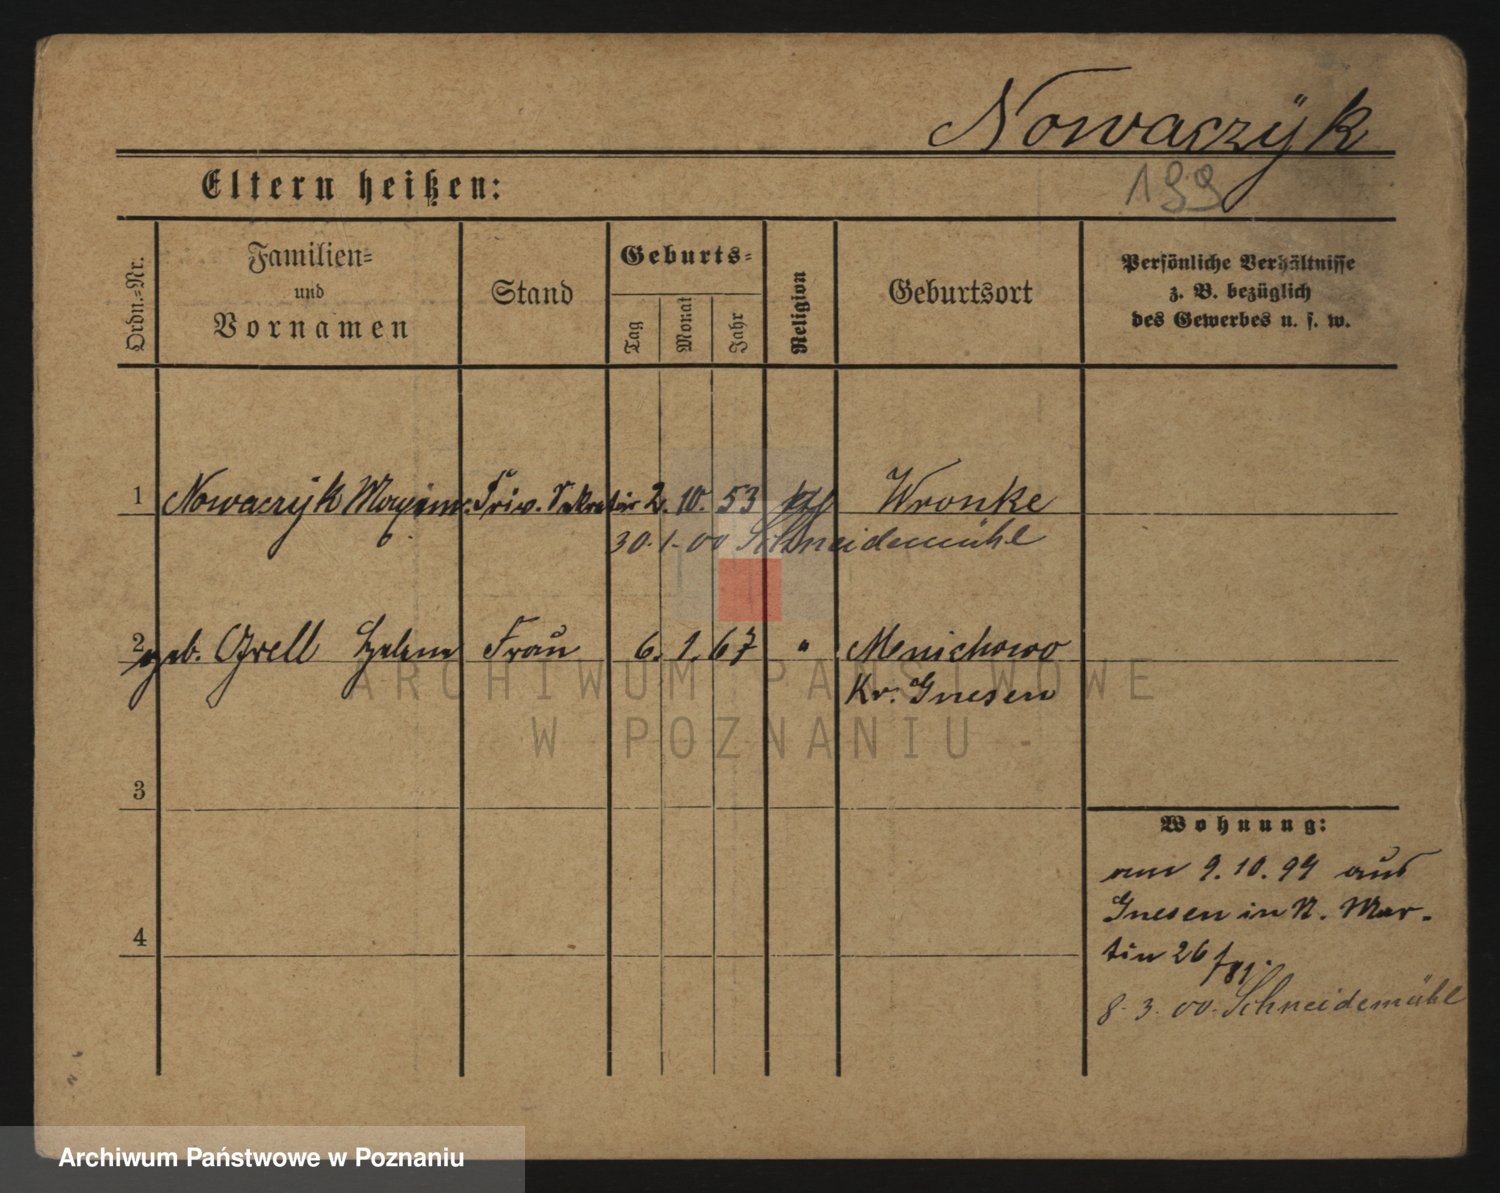 Nowaczÿk
Eltern heißen:
199
Ordn.-Nr.
Familien-
und
Vornamen
Stand
Geburts-
Tag
Monat
Jahr
Religion
Geburtsort
Persönliche Verhältnisse
z. B. bezüglich
des Gewerbes u. s. w.
1 Nowaczÿk Priv. Sekretär 2. 10. 53 Wronke
30. 1. 00 Schneidemühl
2 geb. Grell Helene Frau 6. 1. 67 " Menichowo
Kr. Gnesen
ARCHIWUM PAŃSTWOWE
W POZNANIU
3
4
Wohnung:
am 9. 10. 94 aus
Gnesen in St. Mar-
tin 26
8. 3. 00. Schneidemühl
Archiwum Państwowe w Poznaniu